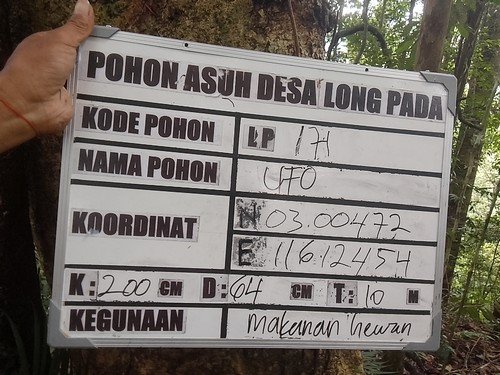 POHON ASUH DESA LONG PADA
KODE POHON LP 171
NAMA POHON UFO
KOORDINAT N 03.00472
E 116.12454
K: 200 CM D: 64 CM T: 10 M
KEGUNAAN makanan hewan